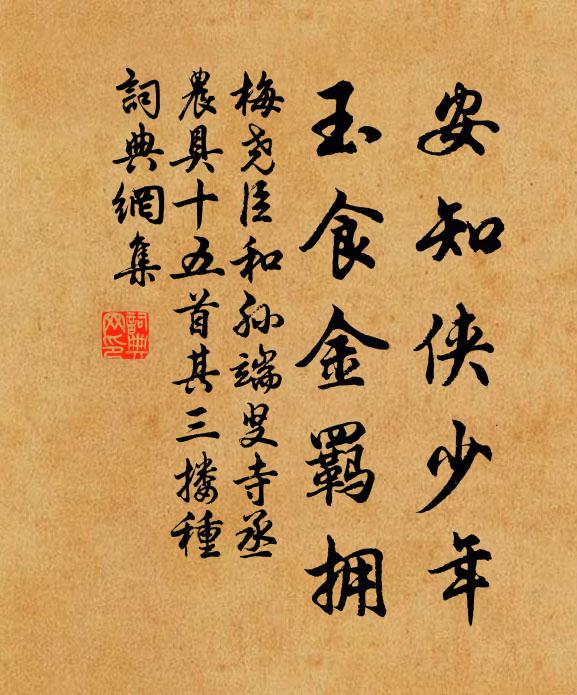 安知侠少年
玉食金羁拥
梅尧臣和孙端叟寺丞
農具十五首其三搂種
詞典網集
詞典网印